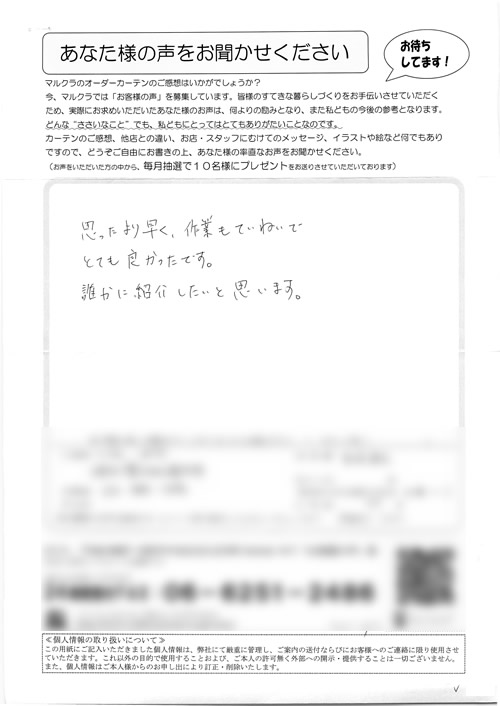 あなた様の声をお聞かせください
お待ち
してます!
マルクラのオーダーカーテンのご感想はいかがでしょうか?
今、マルクラでは「お客様の声」を募集しています。皆様のすてきな暮らしづくりをお手伝いさせていただく
ため、実際にお求めいただいたあなた様のお声は、何よりの励みとなり、また私どもの今後の参考となります。
どんな“ささいなこと”でも、私どもにとってはとてもありがたいことなのです。
カーテンのご感想、他店との違い、お店・スタッフにむけてのメッセージ、イラストや絵など何でもあり
ますので、どうぞご自由にお書きの上、あなた様の率直なお声をお聞かせください。
(お声をいただいた方の中から、毎月抽選で10名様にプレゼントをお送りさせていただいております)
思ったより早く、作業もていねいで
とても良かったです。
誰かに紹介したいと思います。
≪個人情報の取り扱いについて≫
この用紙にご記入いただきました個人情報は、弊社にて厳重に管理し、ご案内の送付ならびにお客様へのご連絡に限り使用させ
ていただきます。これ以外の目的で使用することおよび、ご本人の許可無く外部への開示・提供することは一切ございません。
また、個人情報はご本人様からのお申し出により訂正・削除いたします。